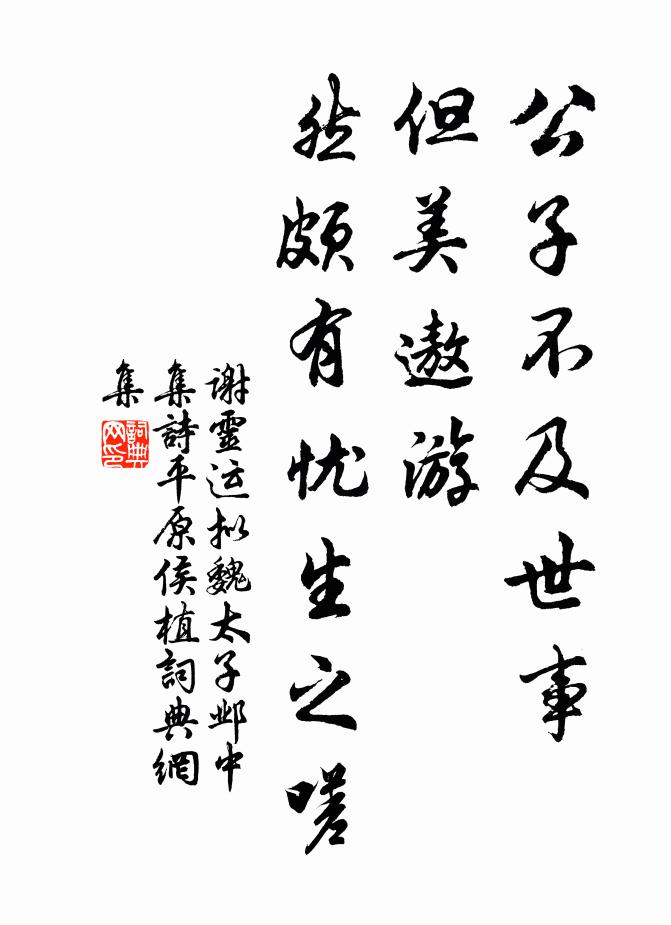 公子不及世事
但美遨游
然颇有忧生之嗟
谢灵运拟魏太子邺中
集詩平原侯植詞典網
集
詞典網印